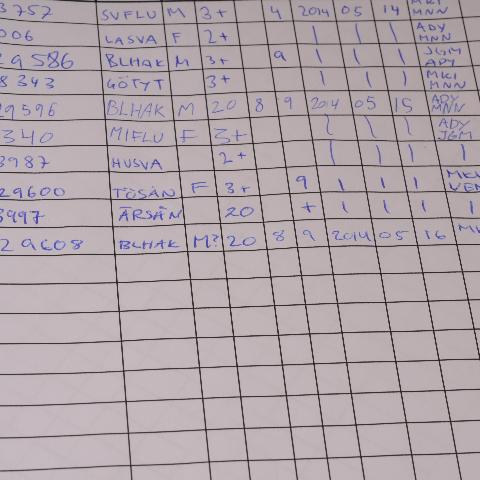 3752 SVFLU M 3+ 4 2014 05 14 MKI MNN
006 LASVA F 2+ | | | ADY MNN
29586 BLHAK M 3+ 9 | | | JGM ADY
8343 GÖTYT 3+ | | | MKI MNN
29596 BLHAK M 20 8 9 2014 05 15 ADY MNN
340 MIFLU F 3+ | | | ADY JGM
3987 HUSVA 2+ | | | |
29600 TÖSÅN F 3+ 9 | | | MKI VEN
3997 ÄRSÅN 20 + | | | |
29608 BLHAK M? 20 8 9 2014 05 16